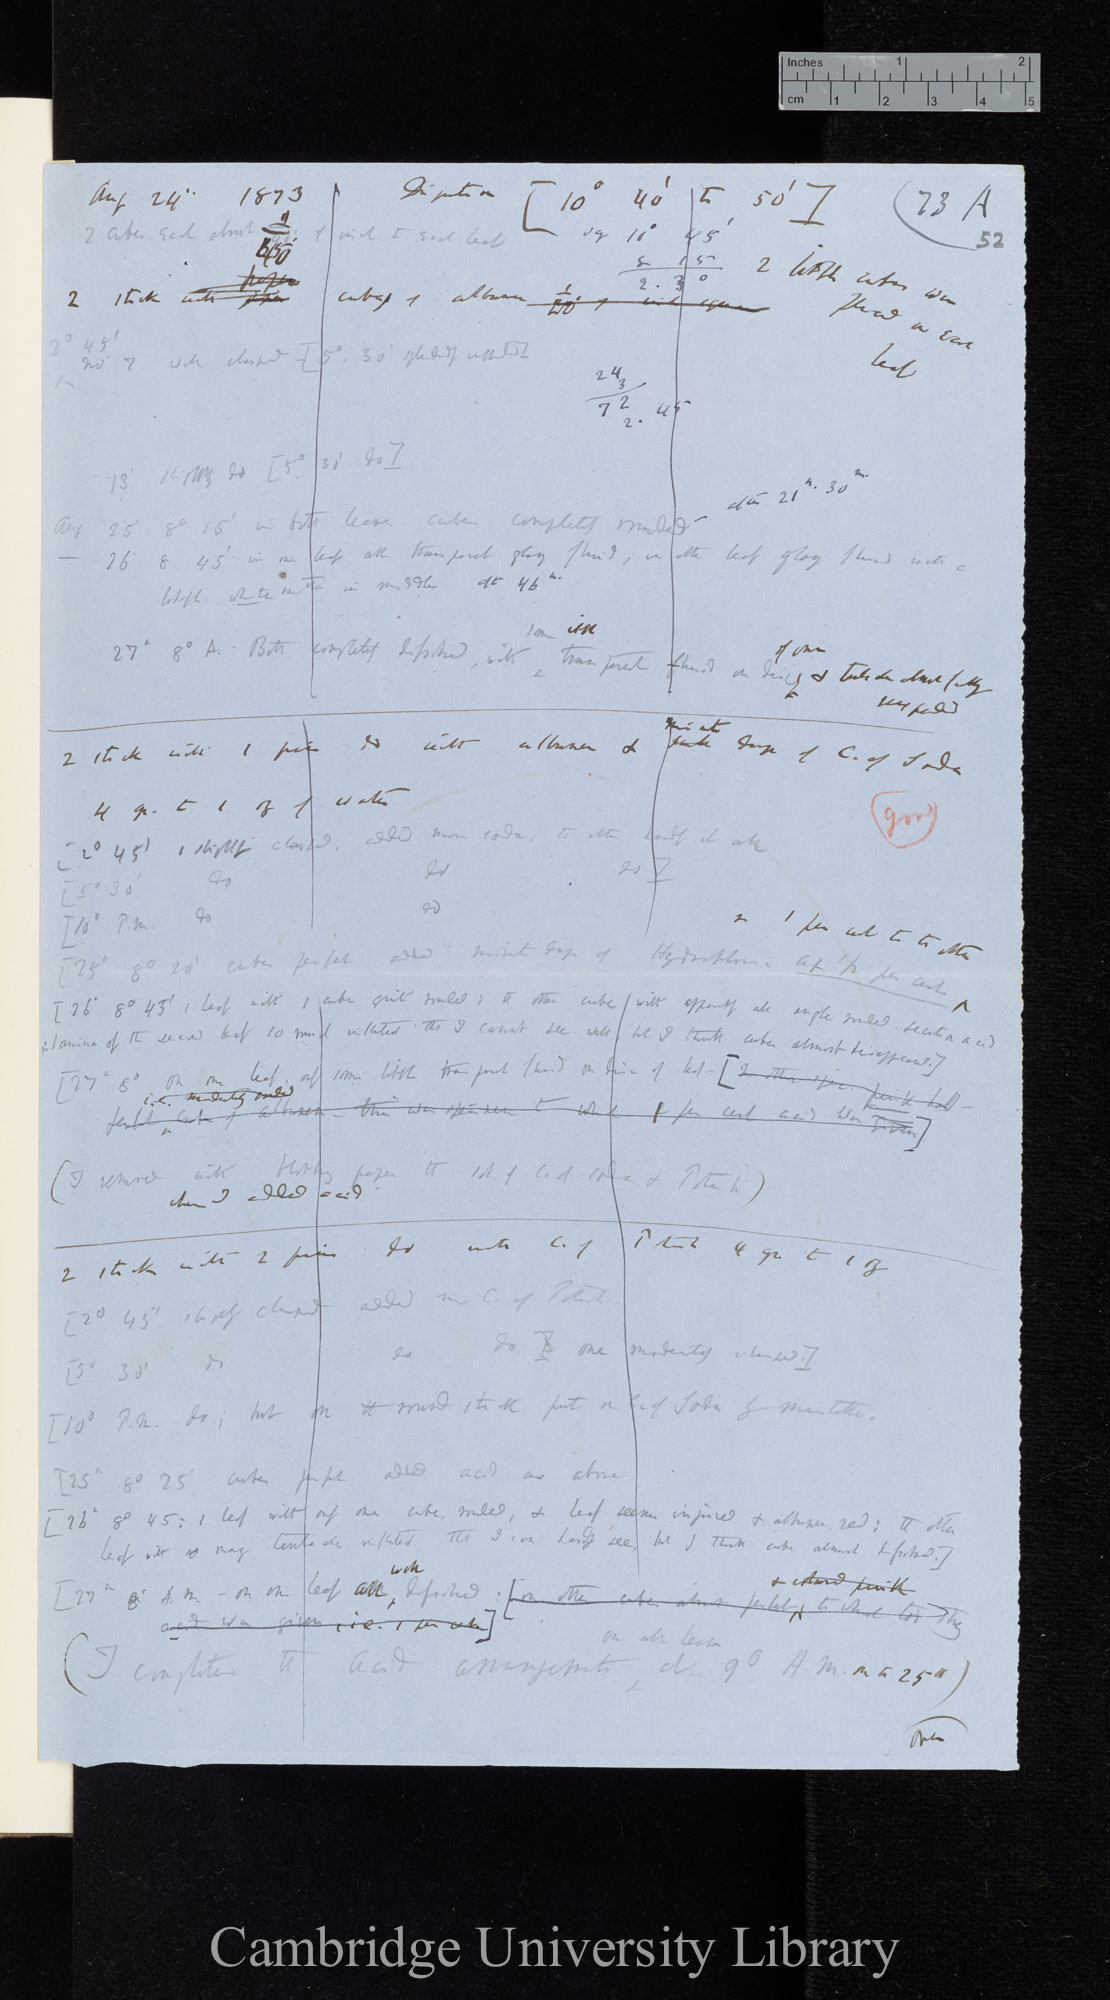 Inches 1 2
cm 1 2 3 4 5
Aug 24th 1873 Digestion [10° 40' to 50']
73 A
52
2 cubes each about 1/20 of inch to each leaf say 10° 45'
8 15
2. 30
2 little cubes were
placed on each
leaf
2 stick with paper cubes of albumen 1/20 of inch square
2° 45'
no 7 well clasped [5°. 30'
24
3
72
2. 45
13 slightly do [5° 30' do]
after 21h. 30m.
Aug 25 8° 15' in both leaves cubes completely rounded
— 26 8. 45' in one leaf all transparent glairy fluid; in other leaf glairy fluid with a
little white matter in middle after 46h.
27th 8° A. Both completely dissolved, with some little transparent fluid on disc of one & tentacles almost fully
re-expanded
2 stick with 1 pin do with albumen & minute drop of C. of Soda
4 gr. to 1 oz of water
good
[2° 45' 1 slightly clasped, added more soda, the other hardly at all
[5° 30' do do do]
[10° P.M. do do
[25th 8° 20' cubes perfect added minute drop of Hydrochloric a 1/2 per cent
& 1 per cent to the other
[26th 8° 45' 1 leaf with 1 cube quite rounded; the other cube with apparently all angles rounded. secretion acid
lamina of the second leaf so much inflected that I cannot see well but I think cubes almost disappeared.]
[27th 8° on one leaf only some little transparent fluid on disc of leaf — [The other
i.e. moderately rounded
cube of albumen — this was specimen to which 1 per cent acid was given]
(I removed with blotting paper the sol. of C. of soda & Potash)
when I added acid
2 stick with 2 pins do with C. of Potash 4 gr to 1 oz
[2° 45' slightly clasped added more C. of Potash
[5° 30' do do do one moderately clasped.]
[10° P.M. do; but on the round stick put on C. of Soda by mistake.
[25th 8° 25' cubes perfect added acid as above
[26th 8° 45: 1 leaf with only one cube, rounded, & leaf seems injured & albumen red: the other
leaf with so many tentacles inflected that I can hardly see, but I think cube almost dissolved.]
[27th 8° A.M. — on one leaf all well dissolved: [on other cubes almost perfect & coloured pink, to which too strong
acid was given i.e. 1 per cent]
on all leaves
(I completed the acid arrangements at 9° A.M. on the 25th)
Over
Cambridge University Library